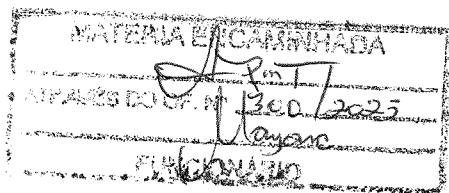 MATERIA ENCAMINHADA
ATRAVES DO OF. Nº 300/2023
Nayane
FUNCIONARIO